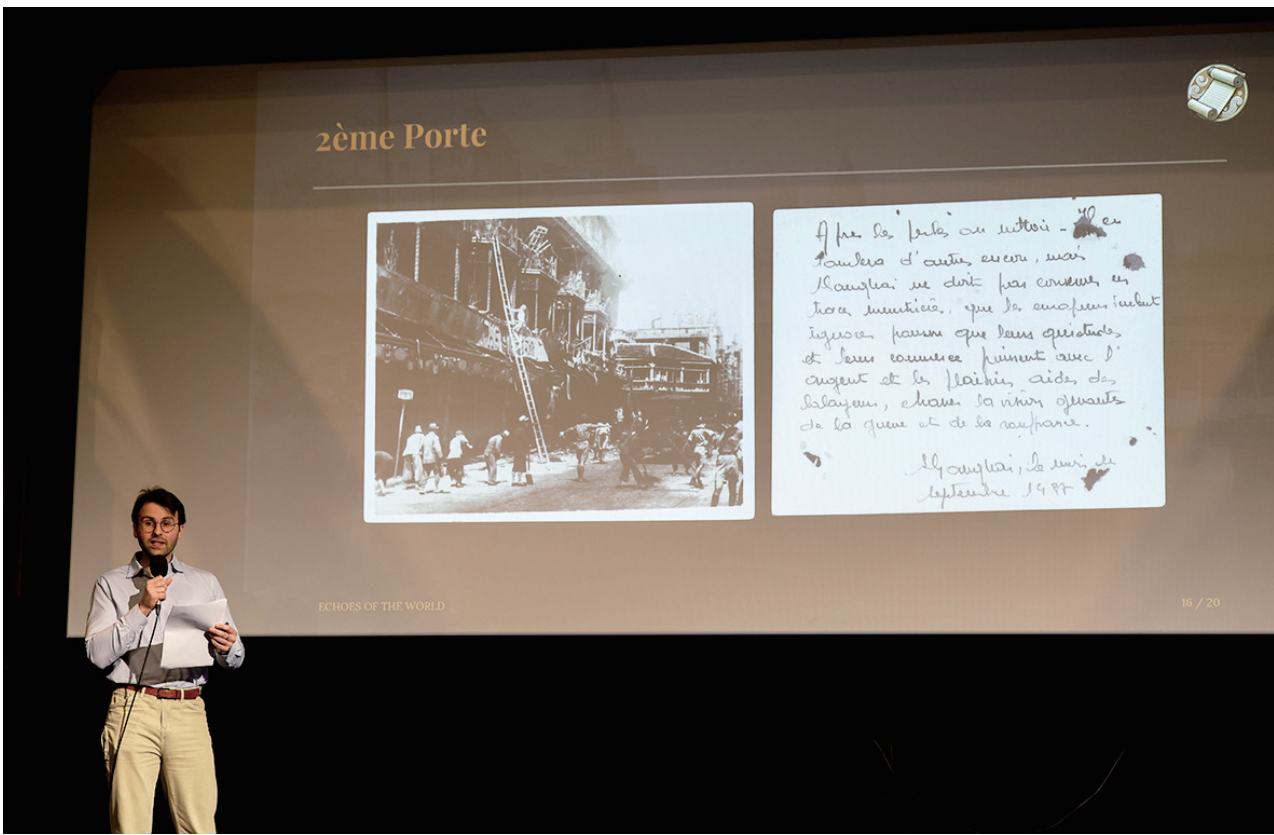 2ème Porte
Après les
d'autres encore, mais
Shanghai ne doit pas conserver ces
traces meurtrières, que les européens veulent
ignorer pourvu que leurs quiétudes
et leurs commerce puissent avec l'
argent et les plaisirs aidés des
balayeurs, chasser la vision gênante
de la guerre et de la souffrance.
Shanghai, le mois de
septembre
ECHOES OF THE WORLD
16 / 20